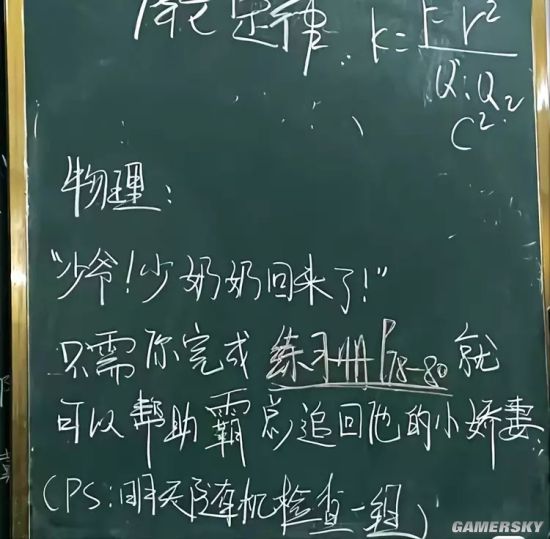 定律 k = F r²
Q₁Q₂
C²
物理：
“少爷！少奶奶回来了！”
只需你完成 练习册P78-80 就
可以帮助霸总追回他的小娇妻
(PS：明天随机检查一组)
GAMERSKY